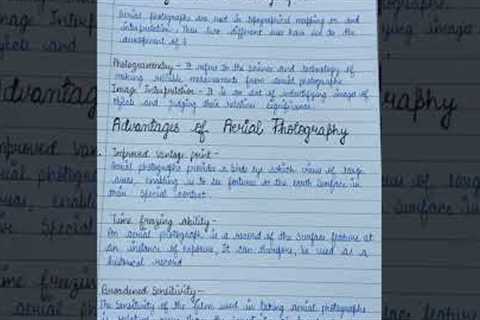 Aerial photographs are used in topographical mapping or and
interpretation. These two different uses have led to the
development of :
Photogrammetry - It refers to the science and technology of
making reliable measurements from aerial photographs
Image Interpretation - It is an art of identifying images of
objects and judging their relative significance.
Advantages of Aerial Photography
Improved vantage point -
Aerial photographs provides a bird's eye which views of large
areas, enabling us to see features on the earth surface in
their special context.
Time freezing ability -
An aerial photograph is a record of the surface feature at
an instance of exposure, it can therefore, be used as a
historical record
Broadened Sensitivity -
The sensitivity of the film used in taking aerial photographs